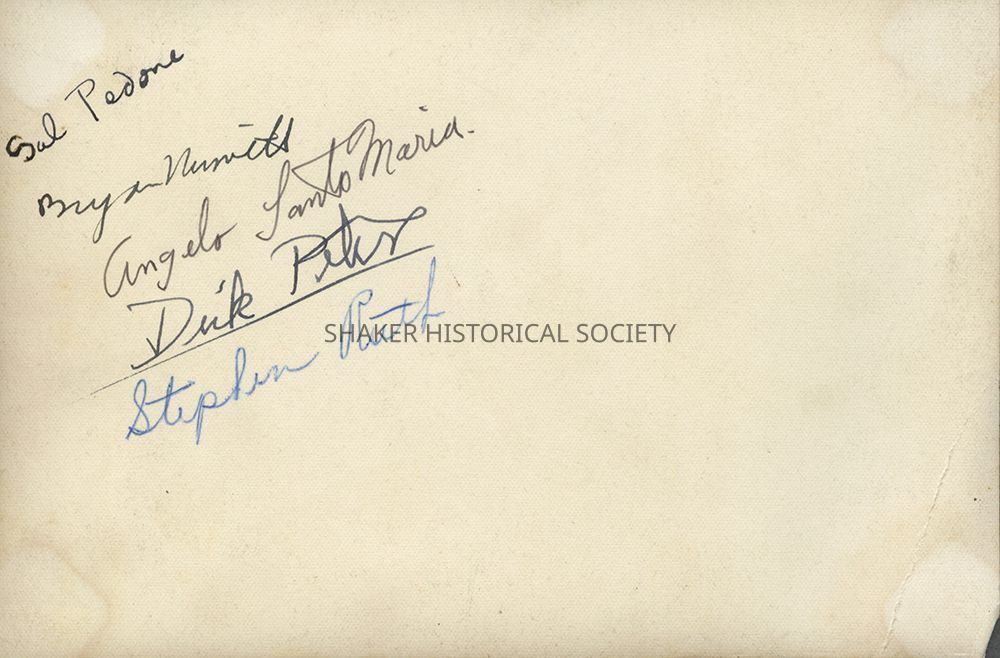 Sal Pedone
Bryan
Angelo SantoMaria.
Dick Peters
Stephen Ruth
SHAKER HISTORICAL SOCIETY